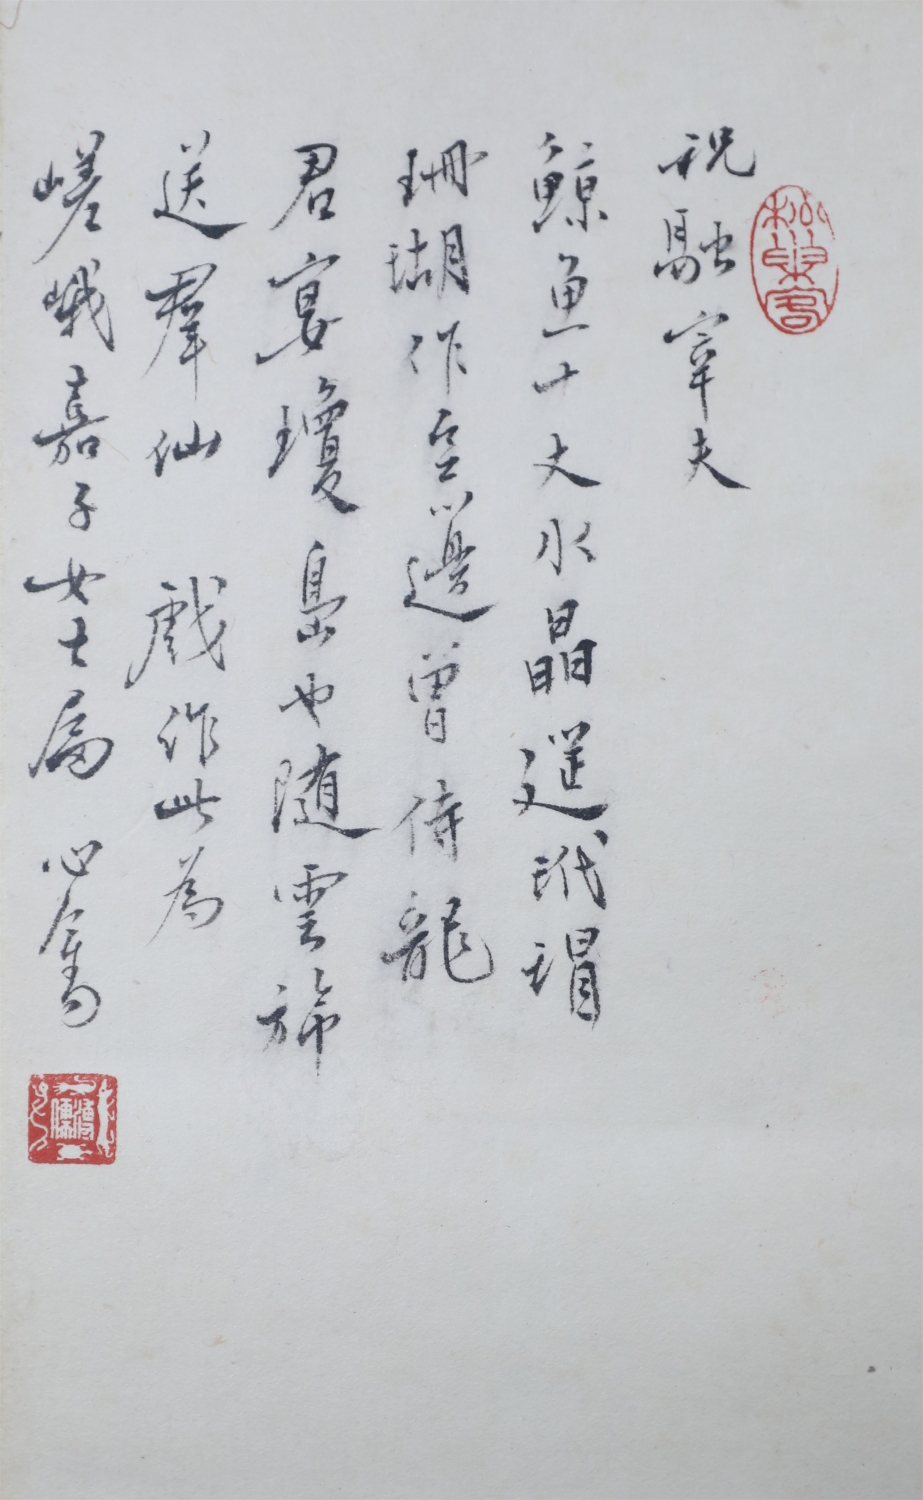 祝融宰夫
鲸魚十丈水晶筵玳瑁
珊瑚作豆籩曾侍龍
君宴瓊島也隨雲旆
送羣仙 戲作此為
嵯峨嘉子女士屬 心畬
松巢客